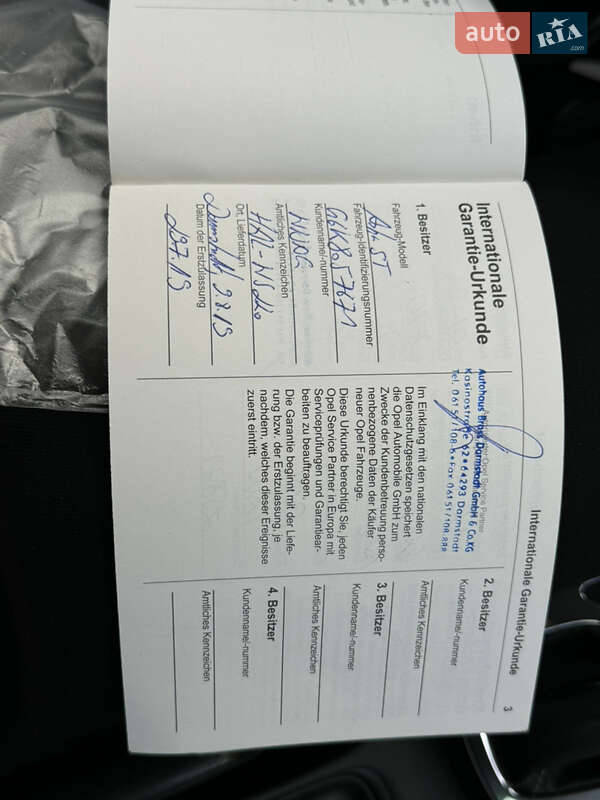 auto RIA .com
Internationale Garantie-Urkunde
3
Internationale
Garantie-Urkunde
1. Besitzer
Fahrzeug-Modell
ST
Fahrzeug-Identifizierungsnummer
G6118057671
Kundenname/-nummer
Amtliches Kennzeichen
Ort, Lieferdatum
Darmstadt, 9.8.19
Datum der Erstzulassung
29.7.19
Opel Service Partner
Autohaus Brass Darmstadt GmbH & Co.KG
Kasinostraße 62 • 64293 Darmstadt
Im Einklang mit den nationalen
Datenschutzgesetzen speichert
die Opel Automobile GmbH zum
Zwecke der Kundenbetreuung perso-
nenbezogene Daten der Käufer
neuer Opel Fahrzeuge.
Diese Urkunde berechtigt Sie, jeden
Opel Service Partner in Europa mit
Serviceprüfungen und Garantiear-
beiten zu beauftragen.
Die Garantie beginnt mit der Liefe-
rung bzw. der Erstzulassung, je
nachdem, welches dieser Ereignisse
zuerst eintritt.
2. Besitzer
Kundenname/-nummer
Amtliches Kennzeichen
3. Besitzer
Kundenname/-nummer
Amtliches Kennzeichen
4. Besitzer
Kundenname/-nummer
Amtliches Kennzeichen